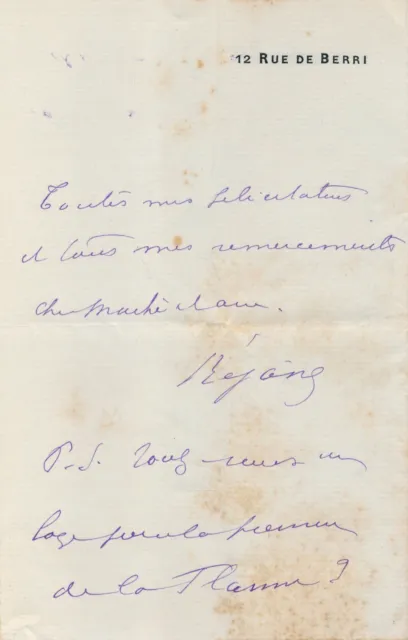 12 RUE DE BERRI
Toutes mes félicitations
et tous mes remerciements
cher Maître et ami.
Réjane
P.S. Vous
loge pour la première
de la Flamme ?